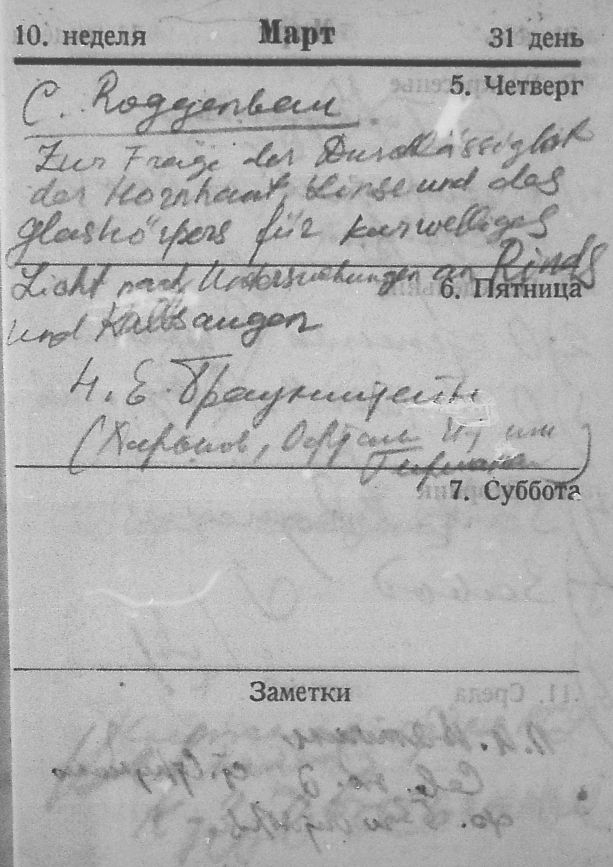 10. неделя Март 31 день
5. Четверг
C. Roggenbau
Zur Frage der Durchlässigkeit
der Hornhaut, Linse und des
Glaskörpers für kurwelliges
Licht nach Untersuchungen an Rinds
6. Пятница
und Kalbsaugen
Н. Е. Браунштейн
(Харьков, Офталь. им
Гиршмана)
7. Суббота
Заметки